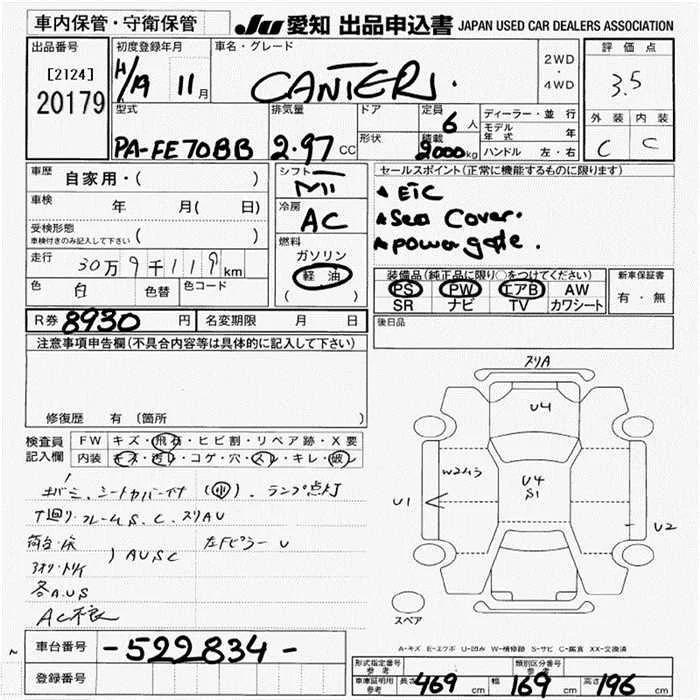 車内保管・守衛保管 JU 愛知 出品申込書 JAPAN USED CAR DEALERS ASSOCIATION
出品番号 初度登録年月 車名・グレード 評価点
[2124] H/19 11月 CANTER 2WD・4WD 3.5
20179
型式 排気量 ドア 定員 6人 ディーラー・並行 外装 内装
モデル年式 年 C C
PA-FE70BB 2.97CC 形状 積載 2000kg ハンドル 左・右
車歴 自家用・( ) シフト MT セールスポイント(正常に機能するものに限ります)
車検 年 月(日) 冷房 AC ETC
受検形態 Sea Cover.
車検付きのみ記入して下さい ( ) 燃料 power gate.
走行 30万9千119km ガソリン
軽油
色 白 色替 色コード ( )
装備品(純正品に限り○をつけてください) 新車保証書
PS PW エアB AW 有・無
SR ナビ TV カワシート
R券 8930円 名変期限 月 日 後日品
注意事項申告欄(不具合内容等は具体的に記入して下さい)
修復歴 有 (箇所 )
検査員記入欄 FW キズ・飛石・ヒビ割・リペア跡・X要
内装 キズ・汚レ・コゲ・穴・スレ・キレ・破レ
シートカバー付 (小). ランプ点灯
下廻り.フレームS.C.スリAU
荷台・床 ) AUSC 左Fピラー U
アオリ・トリイ
各A.U.S
AC不良
スリA
U4
W2ムラ
U4
S1
U1
U2
スペア
A-キズ E-エクボ U-凹み W-補修跡 S-サビ C-腐食 XX-交換済
車台番号 -522834-
登録番号
形式指定番号 参考 類別区分番号 参考
車庫証明用 参考 長さ 469cm 幅 169cm 高さ 196cm